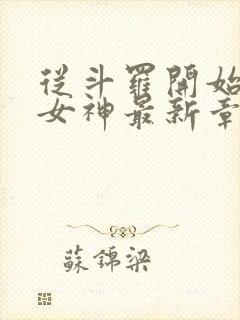 從斗羅開始
女神最新章
蘇錦梁